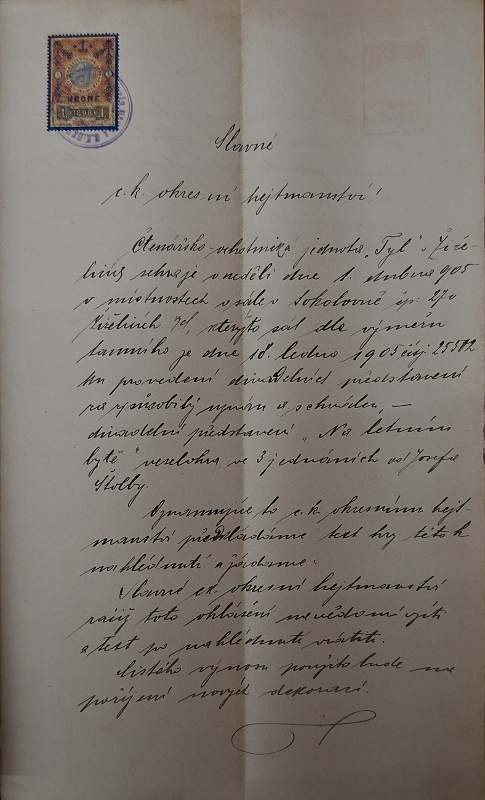 KRONE
1 1898 1
Slavné
c. k. okresní hejtmanství!
Čtenářsko-ochotnická jednota „Tyl" v Žíže-
licích sehraje v neděli dne 1. dubna 905
v místnostech v sále v Sokolovně čp. 270
v Žíželicích n/C, kterýžto sál dle výměru
tamního ze dne 18. ledna 1905 čísj. 25512
ku provedení divadelních představení
za způsobilý uznán a schválen, —
divadelní představení „Na letním
bytě" veselohra ve 3 jednáních od Josefa
Štolby.
Oznamujíce to c. k. okresnímu hejt-
manství předkládáme text hry této k
nahlédnutí a žádáme:
Slavné c.k. okresní hejtmanství
račiž toto ohlášení na vědomí vzíti
a text po nahlédnutí vrátiti.
Čistého výnosu použito bude na
pořízení nových dekorací.